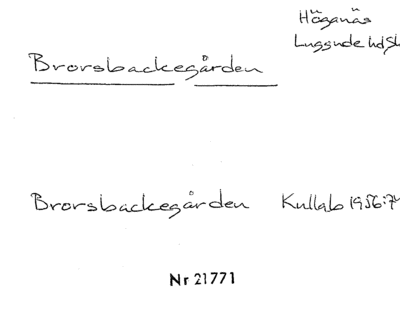 Höganäs
Luggude hd Sk
Brorsbackegården
Brorsbackegården Kullab 1956:74
Nr 21771